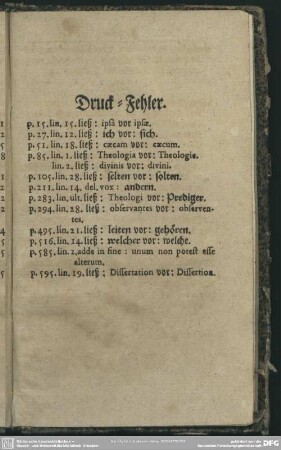 Druck-Fehler.
p. 15. lin. 15. ließ: ipsâ vor ipsæ.
p. 27. lin. 12. ließ: ich vor: sich.
p. 51. lin. 18. ließ: cæcam vor: cæcum.
p. 85. lin. 1. ließ: Theologia vor: Theologie.
lin. 2. ließ: divinis vor: divini.
p. 105. lin. 28. ließ: selten vor: solten.
p. 211. lin. 14. del. vox: andern.
p. 283. lin. ult. ließ: Theologi vor: Prediger.
p. 294. lin. 28. ließ: observantes vor: observen-
tes.
p. 495. lin. 21. ließ: leiten vor: gehören.
p. 516. lin. 14. ließ: welcher vor: welche.
p. 585. lin. 2. adde in fine: unum non potest esse
alterum.
p. 595. lin. 19. ließ: Dissertation vor: Dissertion.